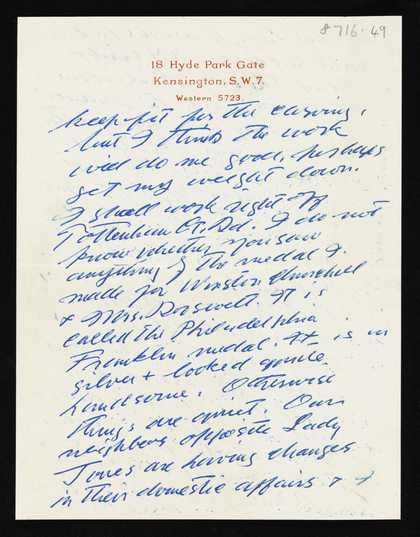 8716.49
18 Hyde Park Gate
Kensington, S.W.7.
Western 5723.
keep fit for the carving,
but I think the work
will do me good, perhaps
get my weight down.
I shall work right off
Tottenham Ct. Rd. I do not
know whether you saw
anything of the medal I
made for Winston Churchill
& Mrs. Roosevelt. It is
called the Philadelphia
Franklin medal. It is in
silver & looked quite
handsome. Otherwise
things are quiet. Our
neighbors opposite Lady
Jones are having changes
in their domestic affairs & I